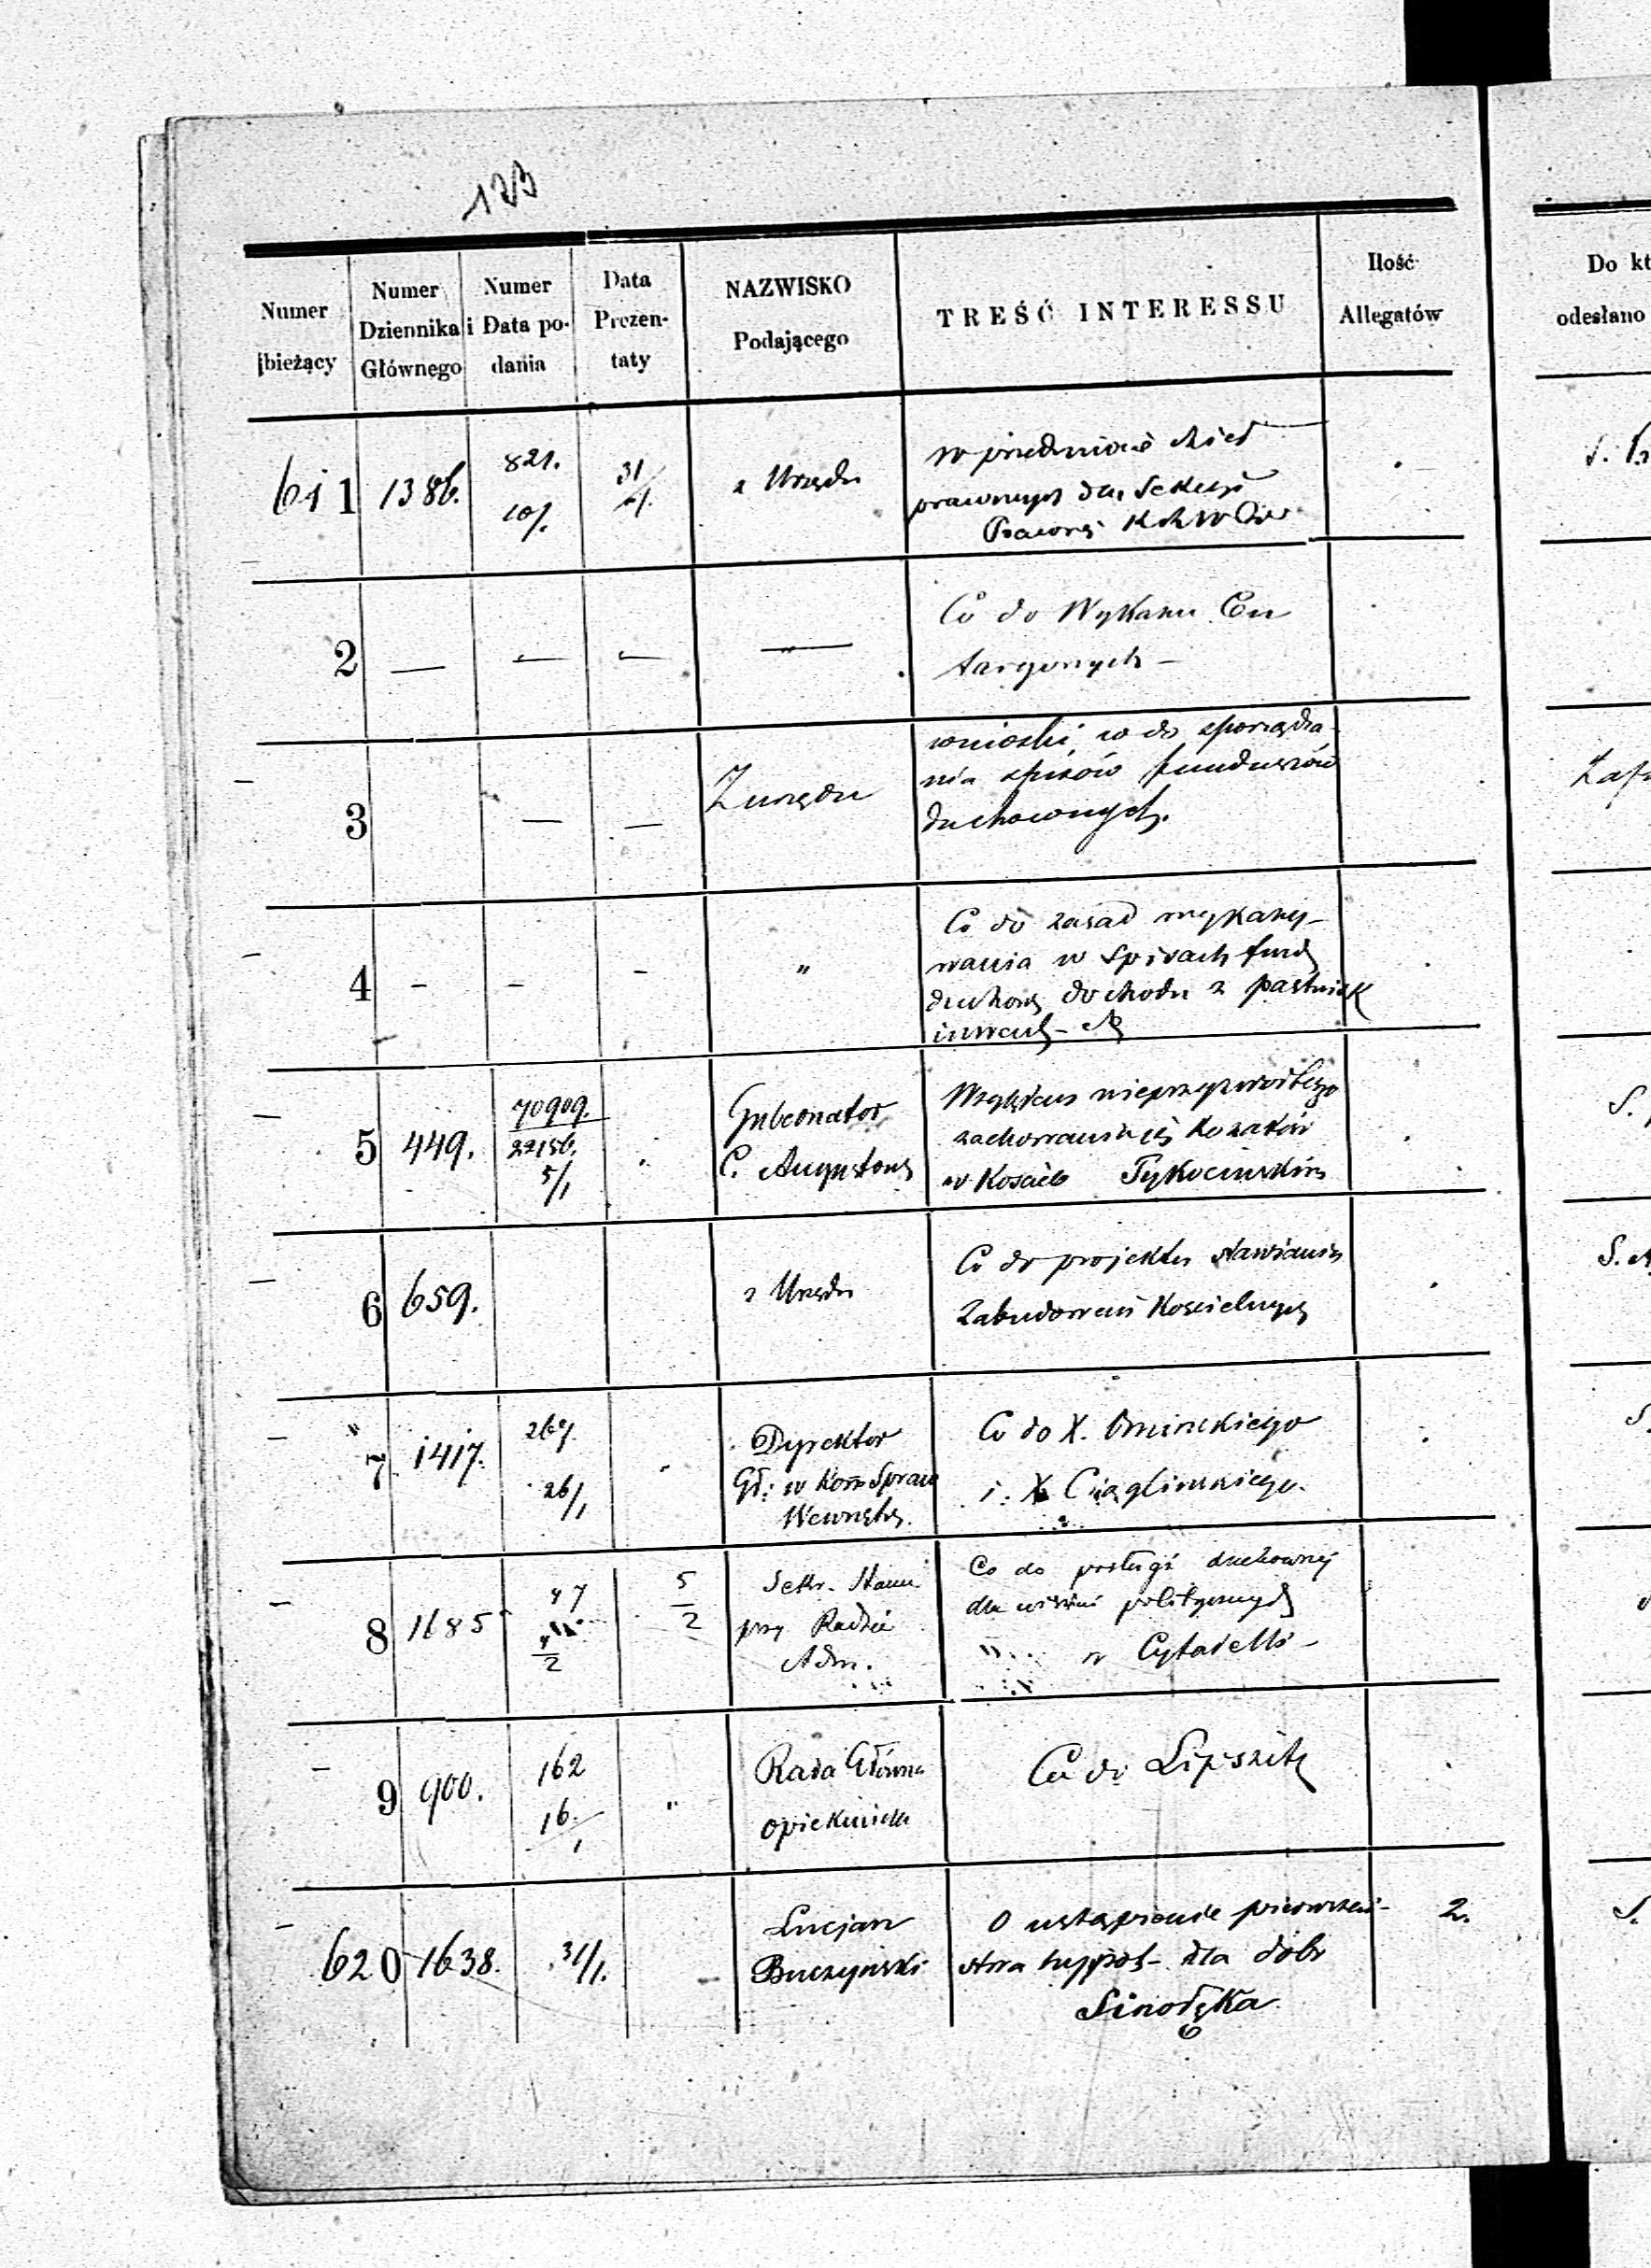 123
Numer bieżący
Numer Dziennika Głównego
Numer i Data podania
Data Prezentaty
NAZWISKO Podającego
TREŚĆ INTERESSU
Ilość Allegatów
Do kt
odesłano
611 1386. 821. 31/1. z Urzędu
w przedmiocie dzieł
prawnych dla Sekcyi
Prawnej
2 — — — —
Co do Wykazu Cen
targowych –
3 — — Z urzędu
wnioski co do sporządza-
nia spisów funduszów
duchownych.
Zap
4 - - - "
Co do zasad wykazy-
wania w Spisach fund
duchow dochodu z pastwisk
5 449. 70909. / 22156. 5/1
Gubernator
C. Augustows
Względem nieprzyzwoitego
zachowania się Kozaków
w Kosciele Tykocinskim
S.
6 659. z Urzędu
Co do projektu stawiania
Zabudowań Kościelnych
7 1417. 267. 26/1
Dyrektor
Gł: w Kom Spraw
Wewnętrz.
Co do X.
i X Ciąglinskiego.
8 1685 47 4/2 5/2
Sekr. Stanu
przy Radzie
Adm.
Co do posługi duchownej
dla więźni politycznych
w Cytadelli –
9 900. 162 16/1 "
Rada Główna
opiekuńcza
Co do Lipszitz
620 1638. 31/1.
Lucjan
Buczyński
O ustąpienie pierwszeń-
stwa hyppot- dla dóbr
Sinołęka
2.
S.